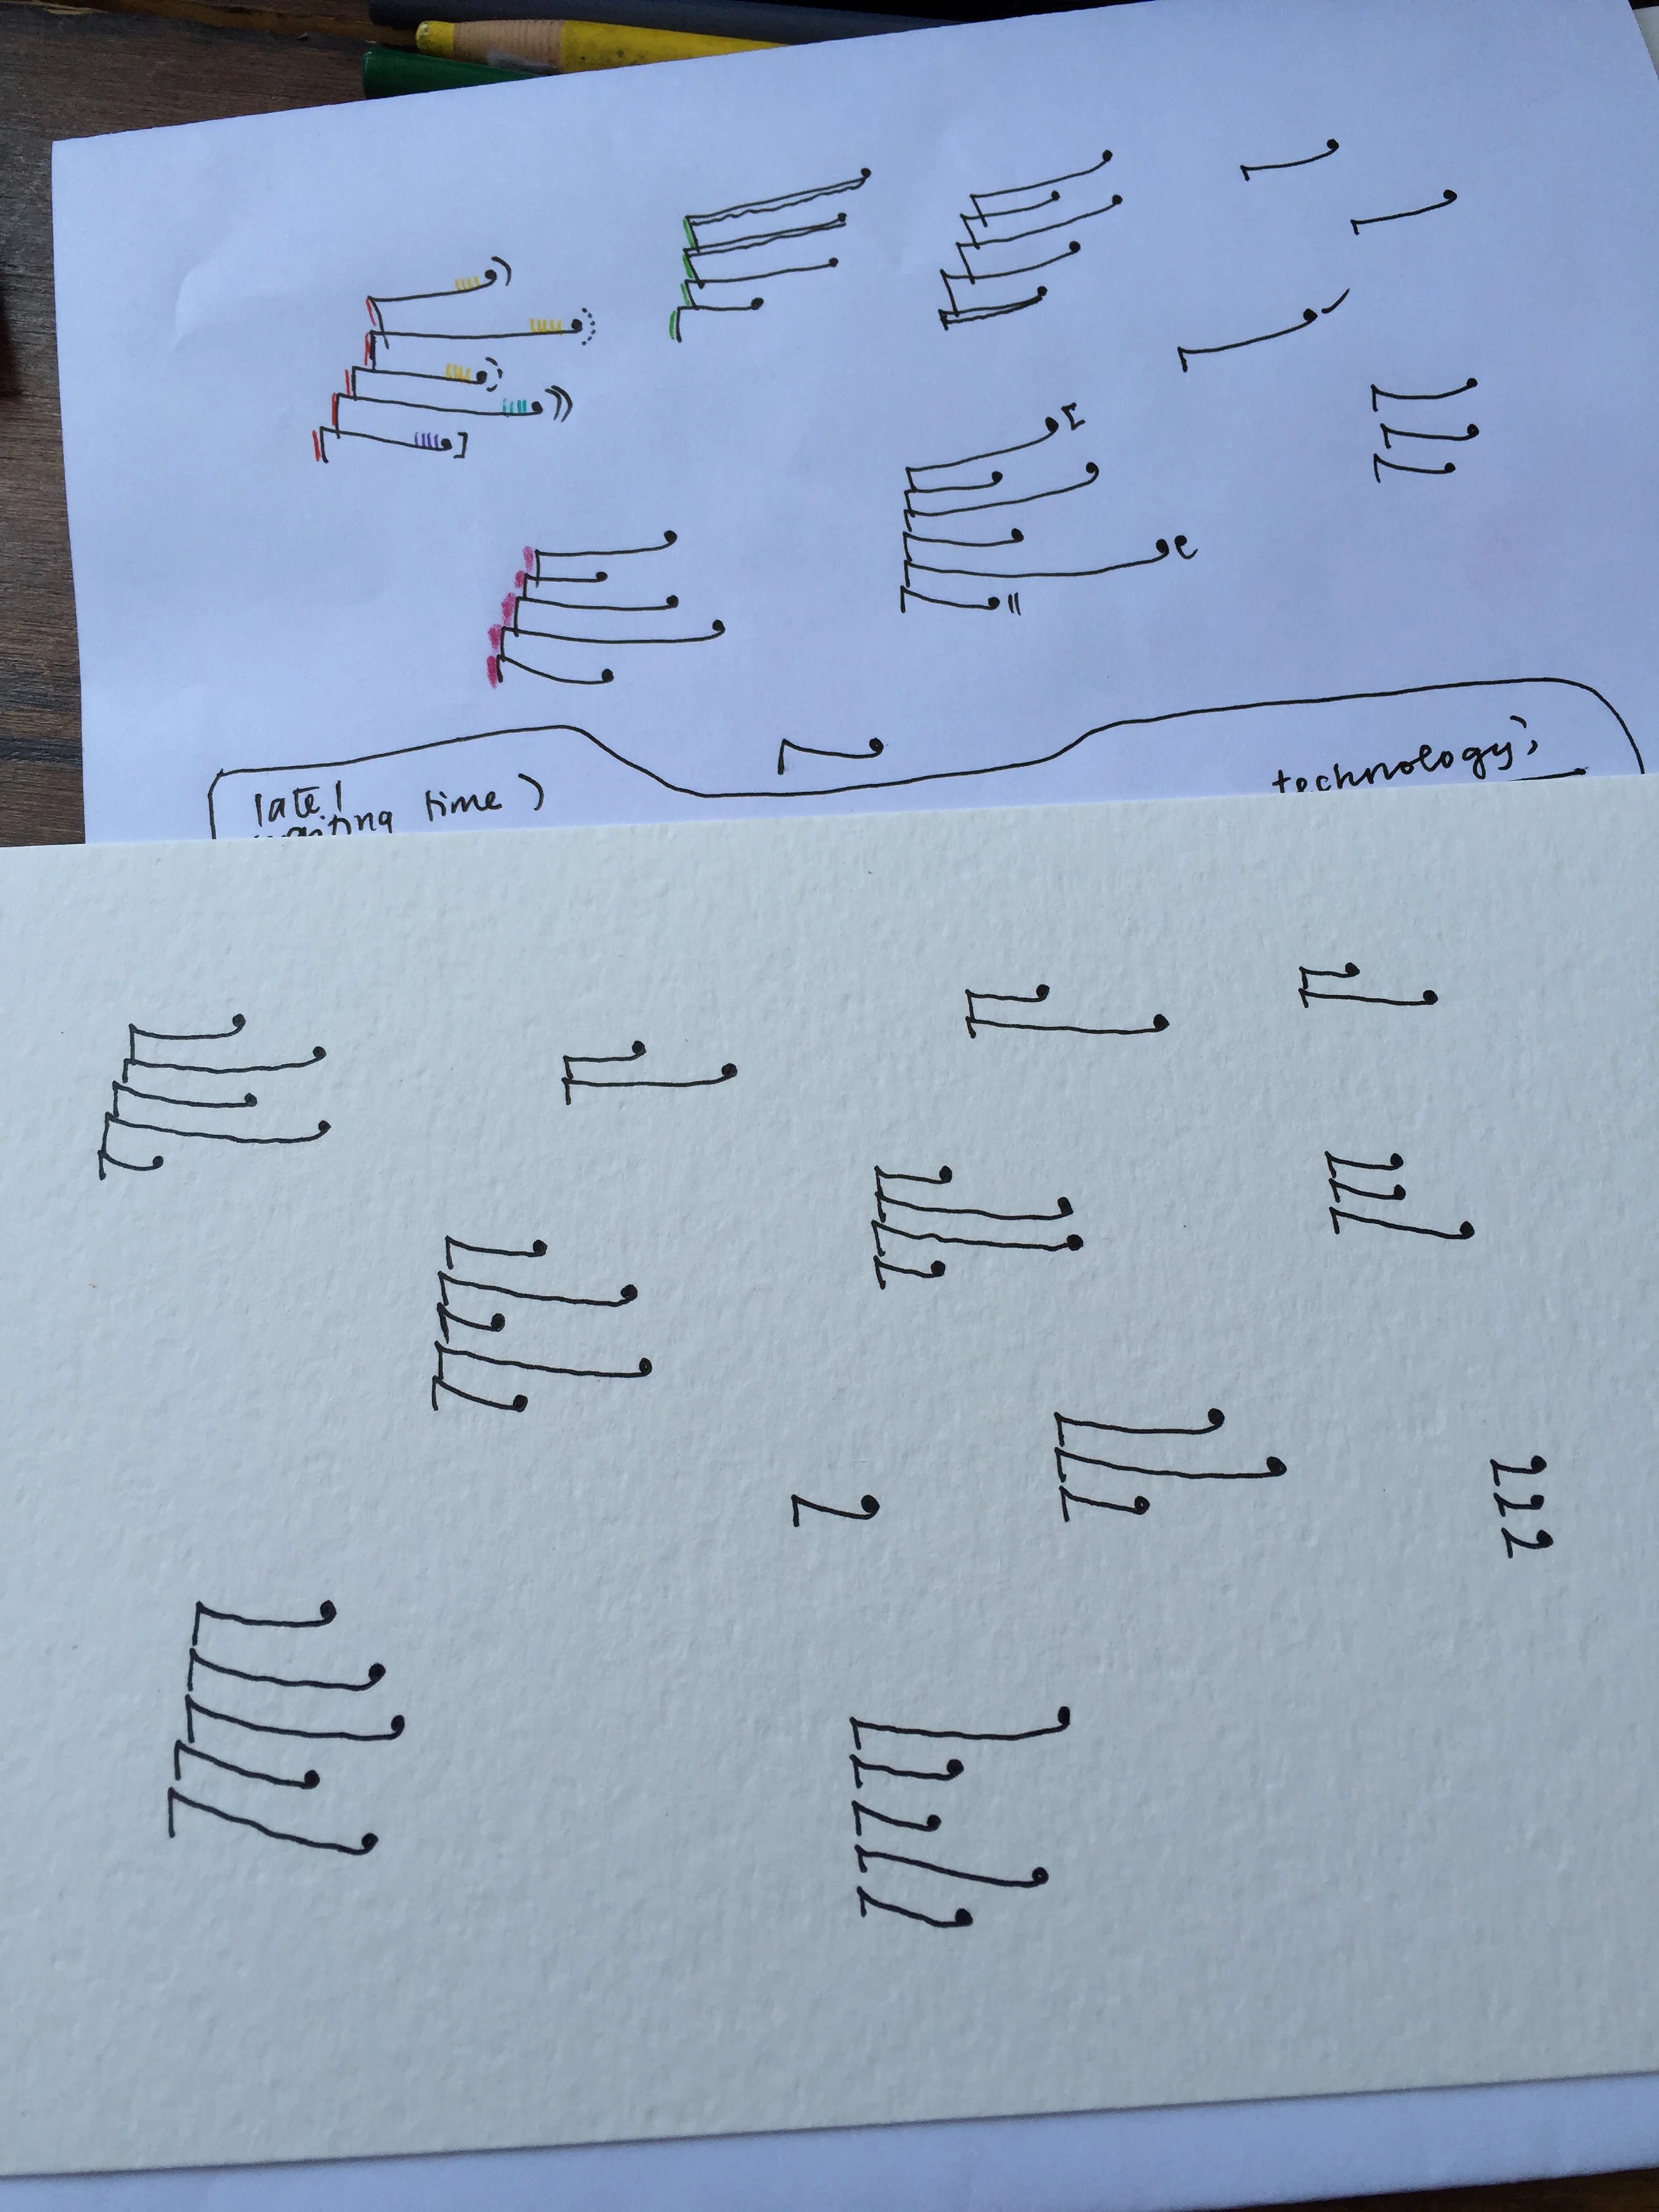 late!
waiting time)
technology;